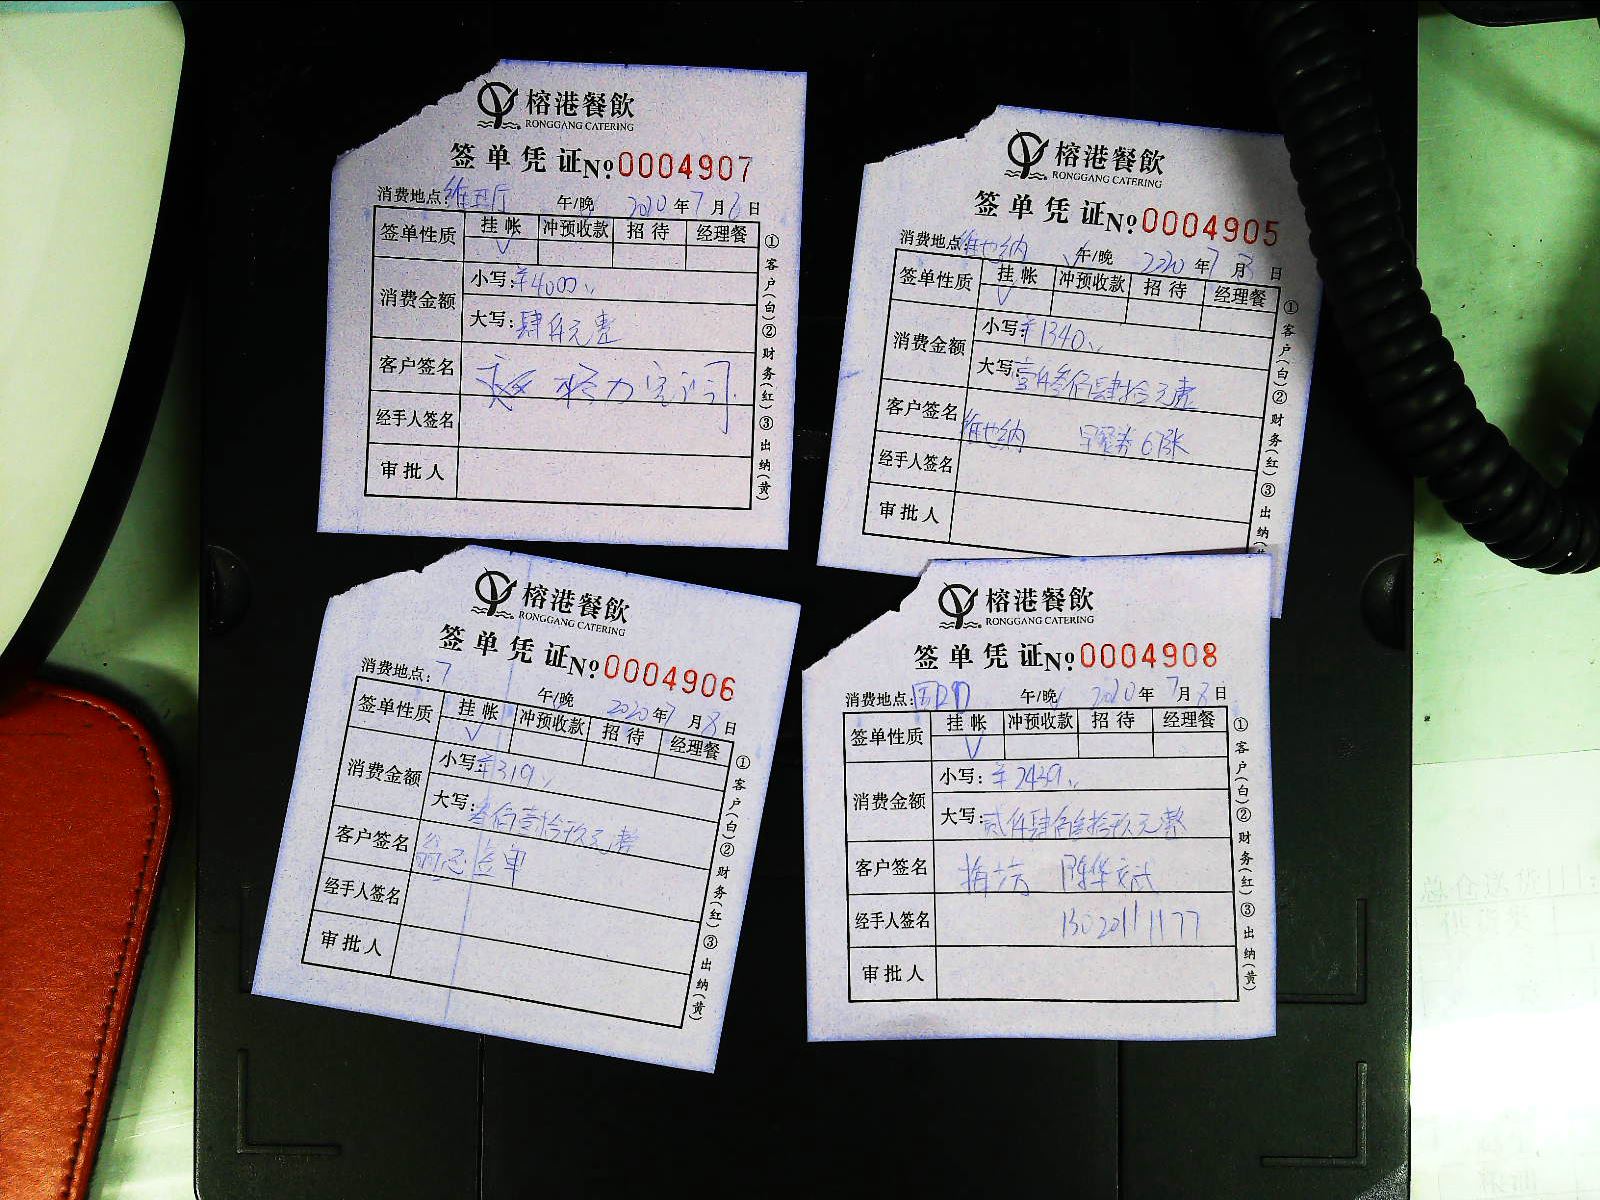 榕港餐飲
RONGGANG CATERING
签单凭证 No 0004907
消费地点: 午/晚 2020年7月8日
签单性质 挂帐 冲预收款 招待 经理餐
√
消费金额 小写: ¥4000
大写: 肆仟元整
客户签名
经手人签名
审批人
①客户(白)②财务(红)③出纳(黄)
榕港餐飲
RONGGANG CATERING
签单凭证 No 0004905
消费地点: 维也纳 午/晚 2020年7月8日
签单性质 挂帐 冲预收款 招待 经理餐
√
消费金额 小写: ¥1340
大写: 壹仟叁佰肆拾元整
客户签名 维也纳 早餐券67张
经手人签名
审批人
①客户(白)②财务(红)③出纳
榕港餐飲
RONGGANG CATERING
签单凭证 No 0004906
消费地点: 7 午/晚 2020年7月8日
签单性质 挂帐 冲预收款 招待 经理餐
√
消费金额 小写: ¥319
大写: 叁佰壹拾玖元整
客户签名 签单
经手人签名
审批人
①客户(白)②财务(红)③出纳(黄)
榕港餐飲
RONGGANG CATERING
签单凭证 No 0004908
消费地点: 午/晚 2020年7月8日
签单性质 挂帐 冲预收款 招待 经理餐
√
消费金额 小写: ¥2439
大写: 贰仟肆佰叁拾玖元整
客户签名
经手人签名 13020111177
审批人
①客户(白)②财务(红)③出纳(黄)